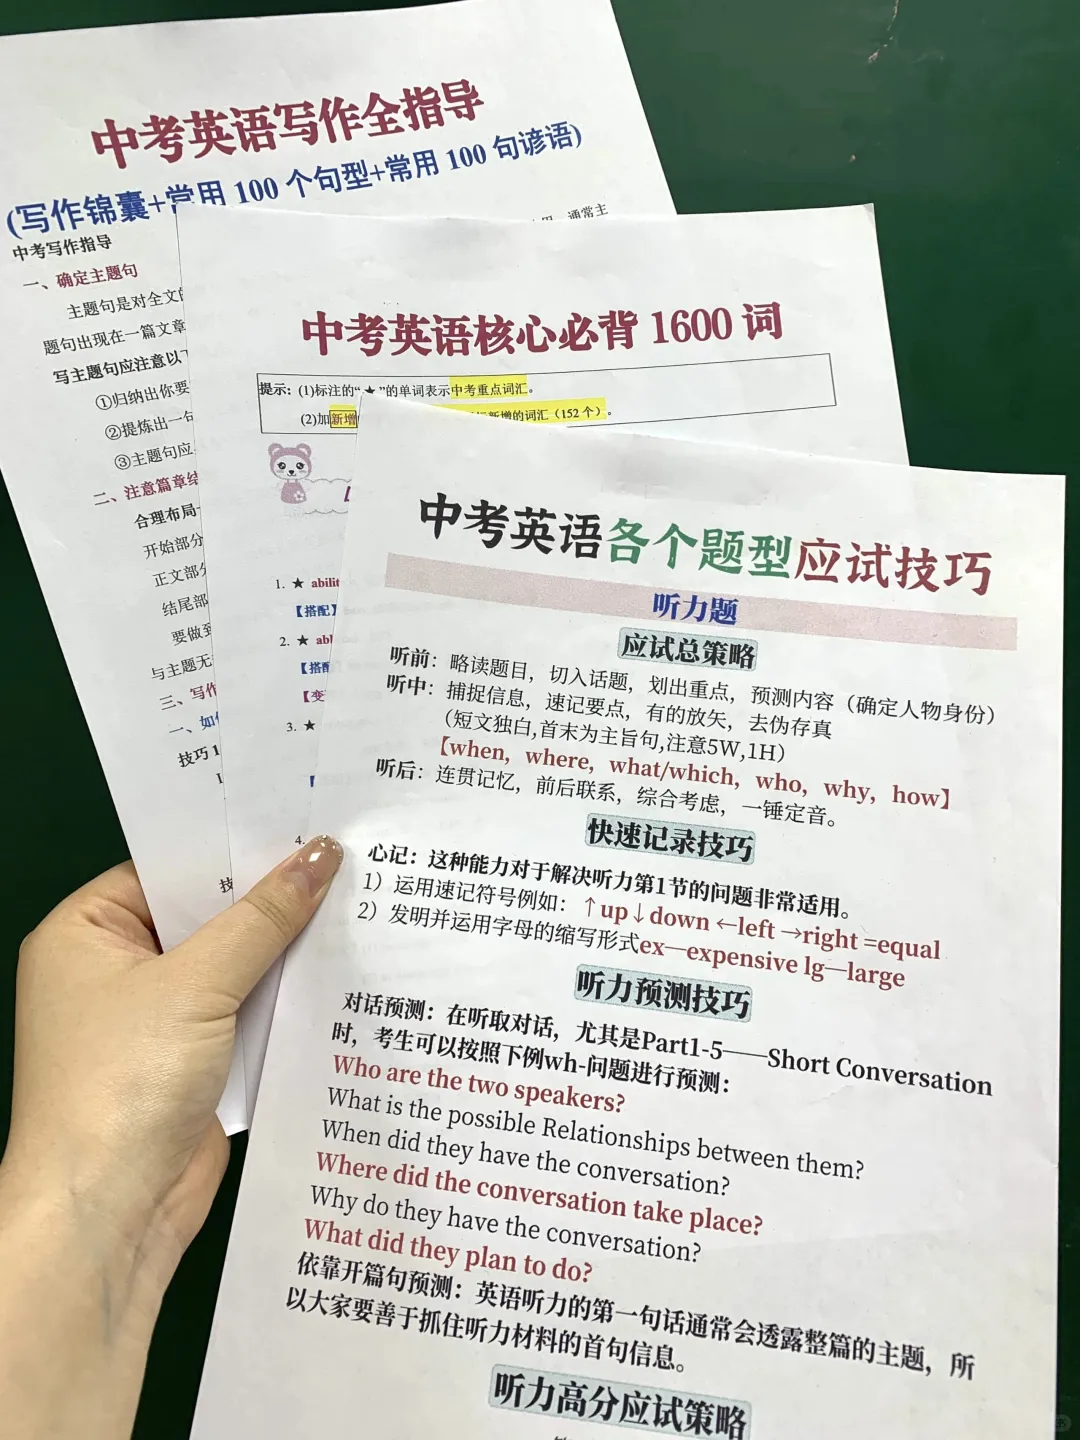 中考英语写作全指导
(写作锦囊+常用 100 个句型+常用 100 句谚语)
通常主
中考写作指导
一、确定主题句
主题句是对全文
题句出现在一篇文章
写主题句应注意以下
①归纳出你要
②提炼出一
③主题句应
二、注意篇章结
合理布局
开始部分
正文部分
结尾部
要做到
与主题无
三、写作
一、如
技巧 1
技
中考英语核心必背 1600 词
提示: (1)标注的“★”的单词表示中考重点词汇。
(2)加新增
新增的词汇（152 个）。
1. ★ abilit
【搭配】
2. ★ abl
【搭配
【变
3. ★
4.
中考英语各个题型应试技巧
听力题
应试总策略
听前：略读题目，切入话题，划出重点，预测内容（确定人物身份）
听中：捕捉信息，速记要点，有的放矢，去伪存真
（短文独白,首末为主旨句,注意5W,1H）
【when，where，what/which，who，why，how】
听后：连贯记忆，前后联系，综合考虑，一锤定音。
快速记录技巧
心记：这种能力对于解决听力第1节的问题非常适用。
1）运用速记符号例如：↑up↓down ←left →right =equal
2）发明并运用字母的缩写形式ex—expensive lg—large
听力预测技巧
对话预测：在听取对话，尤其是Part1-5——Short Conversation
时，考生可以按照下例wh-问题进行预测：
Who are the two speakers?
What is the possible Relationships between them?
When did they have the conversation?
Where did the conversation take place?
Why do they have the conversation?
What did they plan to do?
依靠开篇句预测：英语听力的第一句话通常会透露整篇的主题，所
以大家要善于抓住听力材料的首句信息。
听力高分应试策略